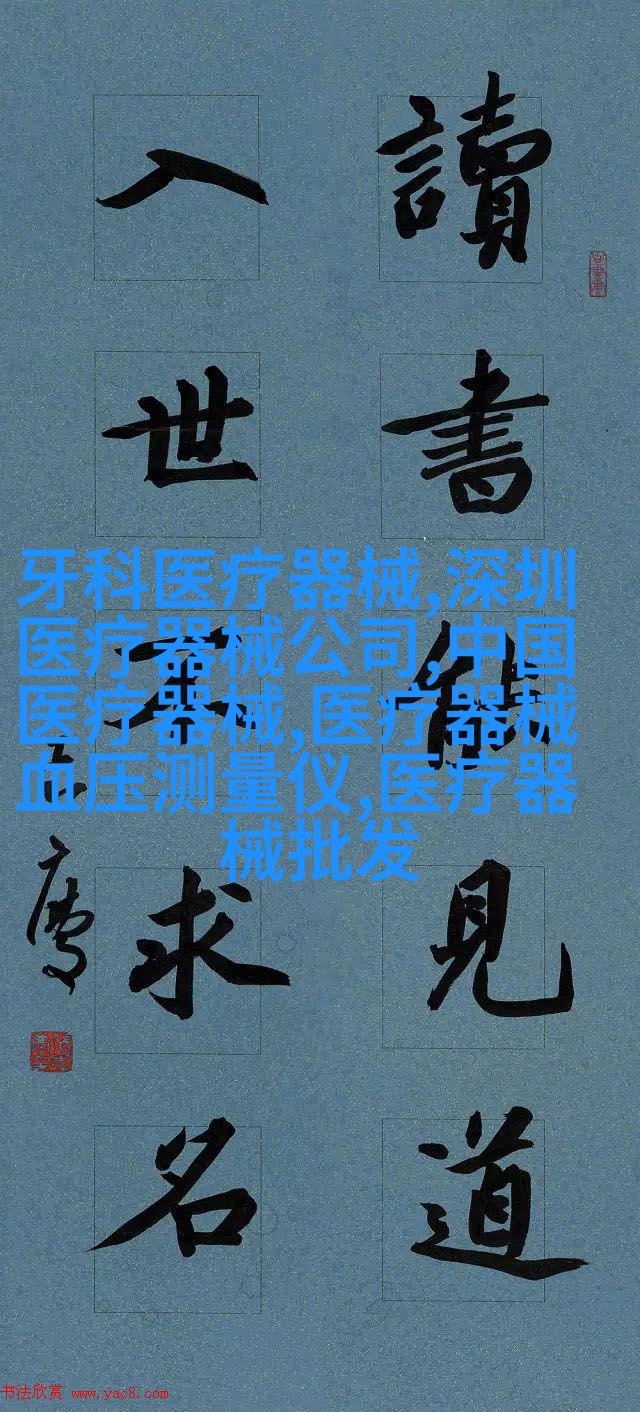 讀書能見道
入世不求名
牙科医疗器械,深圳
医疗器械公司,中国
医疗器械,医疗器械
血压测量仪,医疗器
械批发
书法欣赏 www.yac8.com